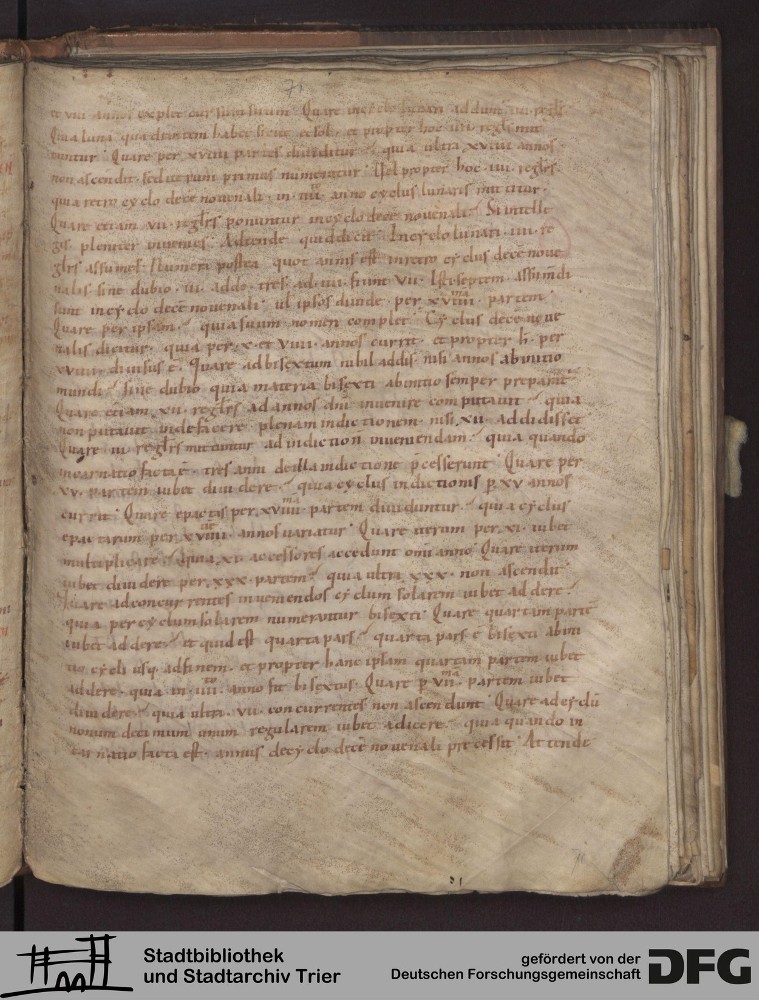 71
et viii annos explet cursum suum. Quare in cyclo lunari addunt iiii regls
Quia luna quadrantem habet sicut et sol. et propter hoc iiii regls mit
tuntur. Quare per xviiii partes dividitur. quia ultra xviiii annos
non ascendit. sed iterum primus numeratur. Vel propter hoc iiii regls.
quia retro cyclo decē novenali. in iiii anno cyclus lunaris mittitur.
Quare etiam vii reglrs ponuntur in cyclo decē novenali. Si intelle
gis pleniter invenies. Adtende quid dicit. In cyclo lunari iiii re
glrs assumes. Numeri postea quot annis est in retro cyclus decē nove
nalis. sine dubio iii. addo tres ad iiii fiunt vii. Isti septem assumdi
sunt in cyclo decē novenali. ul ipsos divide per xviiii partem.
Quare per ipsam. quia suum nomen complet. Cyclus decē nove
nalis dicitur. quia per x et viiii annos currit. et propter h per
xviiii divisus ē. Quare ad bisextum nihil addis nisi annos ab initio
mundi. sine dubio quia materia bisexti ab initio semper prepanit
Quare etiam xii reglrs ad annos dni invenire computavit. quia
non putavit inde facere plenam indictionem. nisi xii addidisset
Quare iii reglrs mittuntur ad indiction inveniendam. quia quando
incarnatio facta ē. tres anni de illa indictione p̄cesserunt. Quare per
xv partem iubet dividere. quia cyclus indictionis p xv annos
currit. Quare epactis per xviiii partem dividuntur. quia cyclus
epactarum per xviiii annos variatur. Quare iterum per xi iubet
multiplicare. quia xi accessores accedunt omi anno. Quare iterum
iubet dividere per xxx partem. quia ultra xxx non ascendit
Quare ad concurrentes inveniendos cyclum solarem iubet addere.
quia per cyclum solarem numerantur bisexti. Quare quartam partē
iubet addere. et quid est quarta pars. quarta pars ē bisexti ab ini
tio cycli usq; ad finem. et propter hanc ipsam quartam partem iubet
addere. quia in iiii anno fit bisextus. Quare p vii partem iubet
dividere. quia ultra vii concurrentes non ascendunt. Quare ad cyclū
nonum decimum unum regularem iubet adicere. quia quando in
carnatio facta est. annus de cyclo decē novenali precessit. Attende
Stadtbibliothek
und Stadtarchiv Trier
gefördert von der
Deutschen Forschungsgemeinschaft
DFG